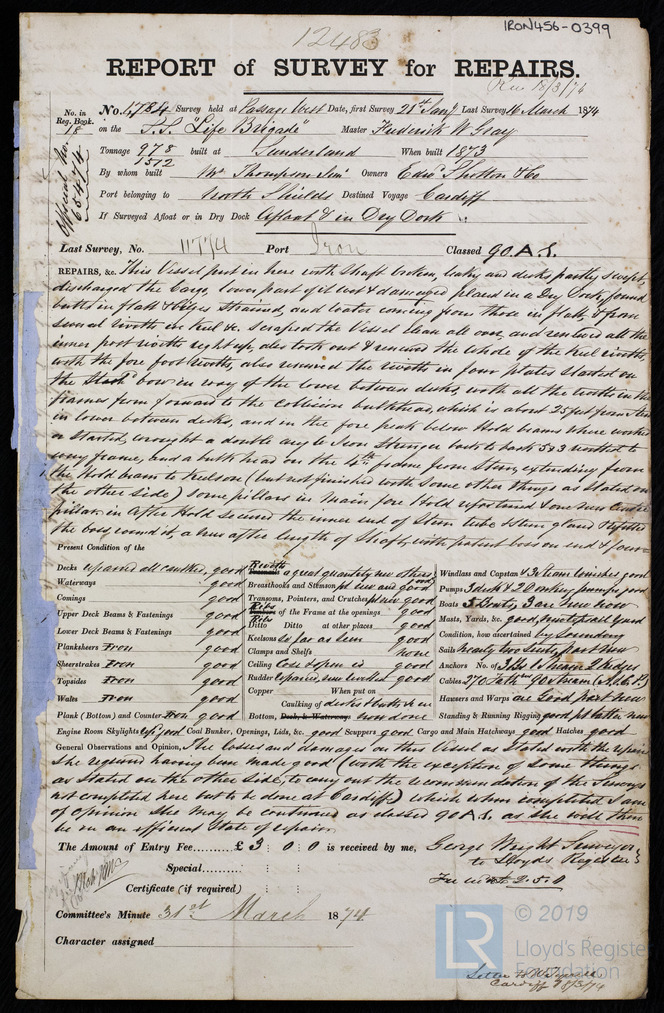 IRON456-0399
12483
REPORT of SURVEY for REPAIRS.
Rec 18/3/74
No. in Reg. Book. 18
No. Survey held at Passage West Date, first Survey 21st Jany Last Survey 16 March 1874
on the S.S. "Life Brigade" Master Frederick W Gray
Tonnage 978 1512 built at Sunderland When built 1873
By whom built Mr Thompson Senr Owners Edwd Shotton & Co
Port belonging to North Shields Destined Voyage Cardiff
If Surveyed Afloat or in Dry Dock Afloat & in Dry Dock
Official No. 65474
Last Survey, No. Port Iron Classed 90.A.1.
REPAIRS, &c. This Vessel put in here with Shaft broken, leaky and decks partly swept,
discharged the Cargo, lower part of it wet & damaged placed in a Dry Dock, found
butts in flatt & Bilges strained, and water coming from those in flatt, & from
several rivetts in Keel &c. scraped the Vessel clean all over, and renewed all the
inner post rivetts right up, also took out & renewed the whole of the Keel rivetts
with the fore foot rivetts, also renewed the rivetts in four plates started on
the bow in way of the lower between decks, with all the rivetts in the
frames from forward to the Collision bulkhead, which is about 25 feet from
in lower between decks, and in the fore peak below Hold beams where worked
or started, wrought a double angle Iron Stringer back to back 5x3 rivetted to
every frame, and a bulk head on the 4th frame from Stem, extending from
the Hold beam to Keelson (but not finished with some other things as stated on
the other side) some pillars in Main fore Hold & one new
pillar in After Hold secured the inner end of Stern tube & Stern gland & refitted
the boss round it, a new after length of Shaft, with patent boss on end &
Present Condition of the
Decks repaired all caulked, good
Waterways good
Comings good
Upper Deck Beams & Fastenings good
Lower Deck Beams & Fastenings good
Planksheers Iron good
Sheerstrakes Iron good
Topsides Iron good
Wales Iron good
Plank (Bottom) and Counter Iron good
Rivetts a great quantity new others good
Breasthooks and Stemson pt new and good
Transoms, Pointers, and Crutches pt new good
Ribs of the Frame at the openings good
Ribs Ditto Ditto at other places good
Keelsons as far as seen good
Clamps and Shelfs none
Ceiling good
Rudder repaired, good
Copper When put on
Caulking of decks
Bottom, Deck, & Waterways now done
Windlass and Capstan & 3 Steam winches good
Pumps 3 deck & 2 Donkey pumps good
Boats 5 Boats, 3 are new now
Masts, Yards, &c. good yard
Condition, how ascertained by Sounding
Sails nearly two suits, part new
Anchors No. of
Cables 270
Hawsers and Warps are good part new
Standing & Running Rigging good pt new
Engine Room Skylights good Coal Bunker, Openings, Lids, &c. good Scuppers good Cargo and Main Hatchways good Hatches good
General Observations and Opinion, The losses and damages on this Vessel as Stated with the repairs
She required having been made good (with the exception of some things
as stated on the other side, to carry out the recommendation of the Surveyors
not completed here but to be done at Cardiff) which when completed I am
of opinion She may be continued as classed 90.A.1. as she will then
be in an efficient State of repair.
The Amount of Entry Fee......... £3 : 0 : 0 is received by me, George Wright Surveyor
to Lloyds Register
Special.......... : :
Certificate (if required) : :
Committee's Minute 31st March 1874
Character assigned
LR © 2019
Lloyd's Register
Foundation
Cardiff 18/3/74